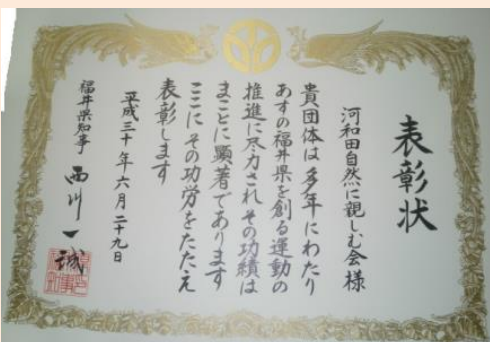 表彰状
河和田自然に親しむ会様
貴団体は多年にわたり
あすの福井県を創る運動の
推進に尽力されその功績は
まことに顕著であります
ここにその功労をたたえ
表彰します
平成三十年六月二十九日
福井県知事 西川一誠